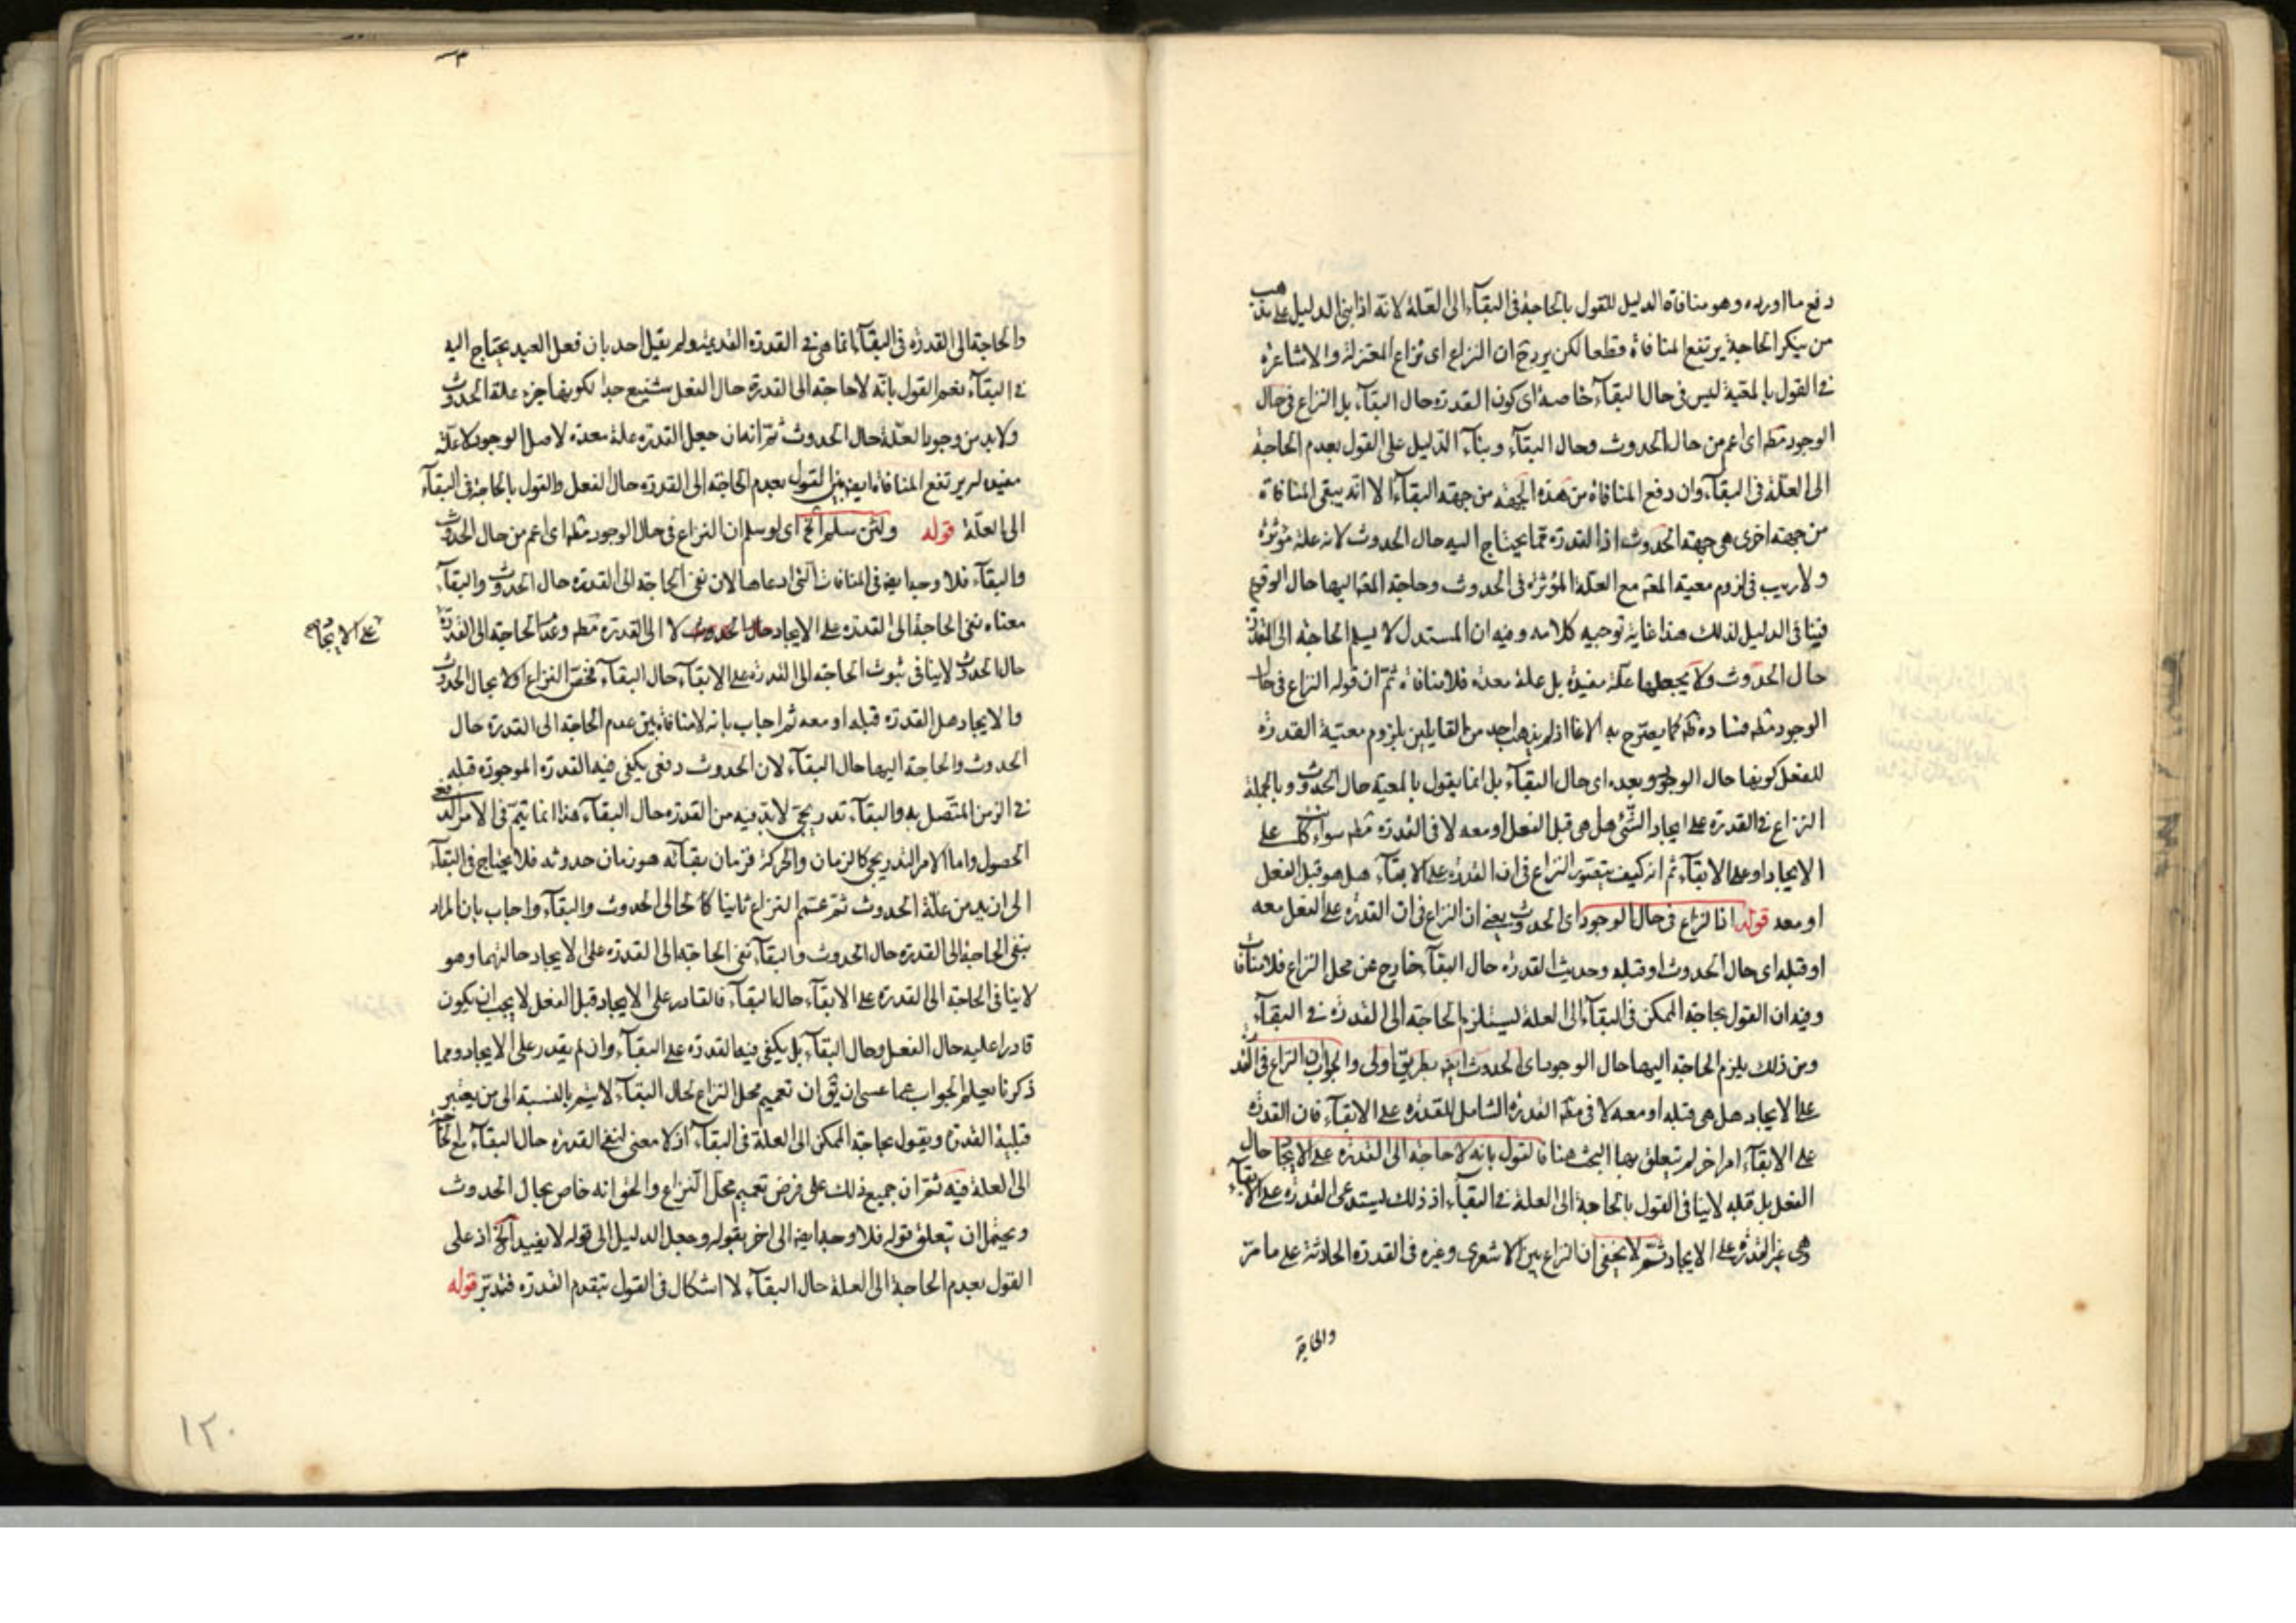 دفع ما اورده وهو منافاة الدليل للقول بالحاجة فى البقآء الى العلة لانه اذا بنى الدليل على مذهب
من ينكر الحاجة يرتفع المنافاة قطعا لكن يرد ح ان النزاع اى نزاع المعتزلة والاشاعرة
فى القول بالمعية ليس فى حال البقآء خاصة اى كون القدرة حال البقآء بل النزاع فى حال
الوجود مطه اى اعم من حال الحدوث وحال البقآء وبنآء الدليل على القول بعدم الحاجة
الى العلة فى البقآء وان دفع المنافاة من هذه الجهة من جهة البقآء الا انه يبقى المنافاة
من جهة اخرى هى جهة الحدوث اذ القدرة مما يحتاج اليه حال الحدوث لانه علة مؤثرة
ولا ريب فى لزوم معية المعه مع العلة المؤثرة فى الحدوث وحاجة المعه اليها حال الوقوع
فينافى الدليل لذلك هذا غاية توجيه كلامه وفيه ان المستدل لا يسلم الحاجة الى القدرة
حال الحدوث ولا يجعلها علة مفيدة بل علة معدة فلا منافاة ثم ان قوله النزاع فى حال
الوجود مطه فساده ظه كما يصرح به الاغا اذ لم يذهب احد من القايلين بلزوم معية القدرة
للفعل كونها حال الوجود وبعده اى حال البقآء بل انما يقول بالمعية حال الحدوث وبالجملة
النزاع فى القدرة على ايجاد الشئ هل هى قبل الفعل او معه لا فى القدرة مطه سواء كانت على
الايجاد او على الابقآء ثم انه كيف يتصور النزاع فى ان القدرة على الابقآء هل هو قبل الفعل
او معه قوله انا النزاع فى حال الوجود اى الحدوث يعنى ان النزاع فى ان القدرة على الفعل معه
او قبله اى حال الحدوث او قبله وحديث القدرة حال البقآء خارج عن محل النزاع فلا منافات
وفيه ان القول بحاجة الممكن فى البقآء الى العلة ليستلزم الحاجة الى القدرة فى البقآء
ومن ذلك يلزم الحاجة اليها حال الوجود اى الحدوث ايضه بطريق اولى والجواب ان النزاع فى القدرة
على الايجاد هل هى قبله او معه لا فى مطه القدرة الشامل للقدرة على الابقآء فان القدرة
على الابقآء امر اخر لم يتعلق بها البحث هنا فالقول بانه لا حاجة الى القدرة على الايجاد حال
الفعل بل قبله لا ينافى القول بالحاجة الى العلة فى البقآء اذ ذلك يستدعى القدرة على الابقآء
وهى غير القدرة على الايجاد ثم لا يخفى ان النزاع بين الاشعرى وغيره فى القدرة الحادثة على ما مر
والحاجة
والحاجة الى القدرة فى البقآء انما هى فى القدرة القديمة ولم يقل احد بان فعل العبد يحتاج اليه
فى البقآء نعم القول بانه لا حاجة الى القدرة حال الفعل شنيع جدا لكونها جزء علة الحدوث
ولا بد من وجود العلة حال الحدوث ثم انه ان جعل القدرة علة معدة لاصل الوجود لا علة
مفيدة لم يرتفع المنافاة ايضه بين القول بعدم الحاجة الى القدرة حال الفعل والقول بالحاجة فى البقآء
الى العلة قوله ولئن سلم الخ اى لو سلم ان النزاع فى حال الوجود مطه اى اعم من حال الحدوث
والبقآء فلا وجه ايضه فى المنافات التى ادعاها لان نفى الحاجة الى القدرة حال الحدوث والبقآء
معناه نفى الحاجة الى القدرة على الايجاد حال الحدوث لا الى القدرة مطه وعدم الحاجة الى القدرة
على الايجاد صح
حال الحدوث لا ينافى ثبوت الحاجة الى القدرة على الابقآء حال البقآء فخص النزاع اولا بحال الحدوث
والايجاد هل القدرة قبله او معه ثم اجاب بانه لا منافاة بين عدم الحاجة الى القدرة حال
الحدوث والحاجة اليها حال البقآء لان الحدوث دفعى يكفى فيه القدرة الموجودة قبله
فى الزمن المتصل به والبقآء تدريجى لا بد فيه من القدرة حال البقآء هذا انما يتم فى الامر الدفعى
الحصول واما الامر التدريجى كالزمان والحركة فزمان بقآئه هو زمان حدوثه فلا يحتاج فى البقآء
الى ازيد من علة الحدوث ثم عمم النزاع ثانيا كالحال الحدوث والبقآء واجاب بان المراد
بنفى الحاجة الى القدرة حال الحدوث والبقآء نفى الحاجة الى القدرة على الايجاد حالتهما وهو
لا ينافى الحاجة الى القدرة على الابقآء حال البقآء فالقادر على الايجاد قبل الفعل لا يجب ان يكون
قادرا عليه حال الفعل وحال البقآء بل يكفى فيه القدرة على البقآء وان لم يقدر على الايجاد ومما
ذكرنا يعلم الجواب عما عسى ان يق ان تعميم محل النزاع لحال البقآء لا يتم بالنسبة الى من يعتبر
قبلية القدرة ويقول بحاجة الممكن الى العلة فى البقآء اذ لا معنى لنفى القدرة حال البقآء مع الحاجة
الى العلة فيه ثم ان جميع ذلك على فرض تعميم محل النزاع والحق انه خاص بحال الحدوث
ويحتمل ان يتعلق قوله فلا وجه ايضه الى اخر بقوله وجعل الدليل الى قوله لا يفيد الخ اذ على
القول بعدم الحاجة الى العلة حال البقآء لا اشكال فى القول بتقدم القدرة فتدبر قوله
١٢٠